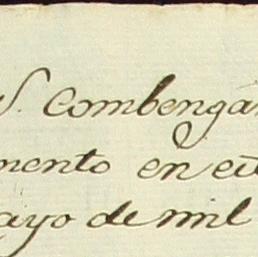 S. Combengan
mento en est
ayo de mil